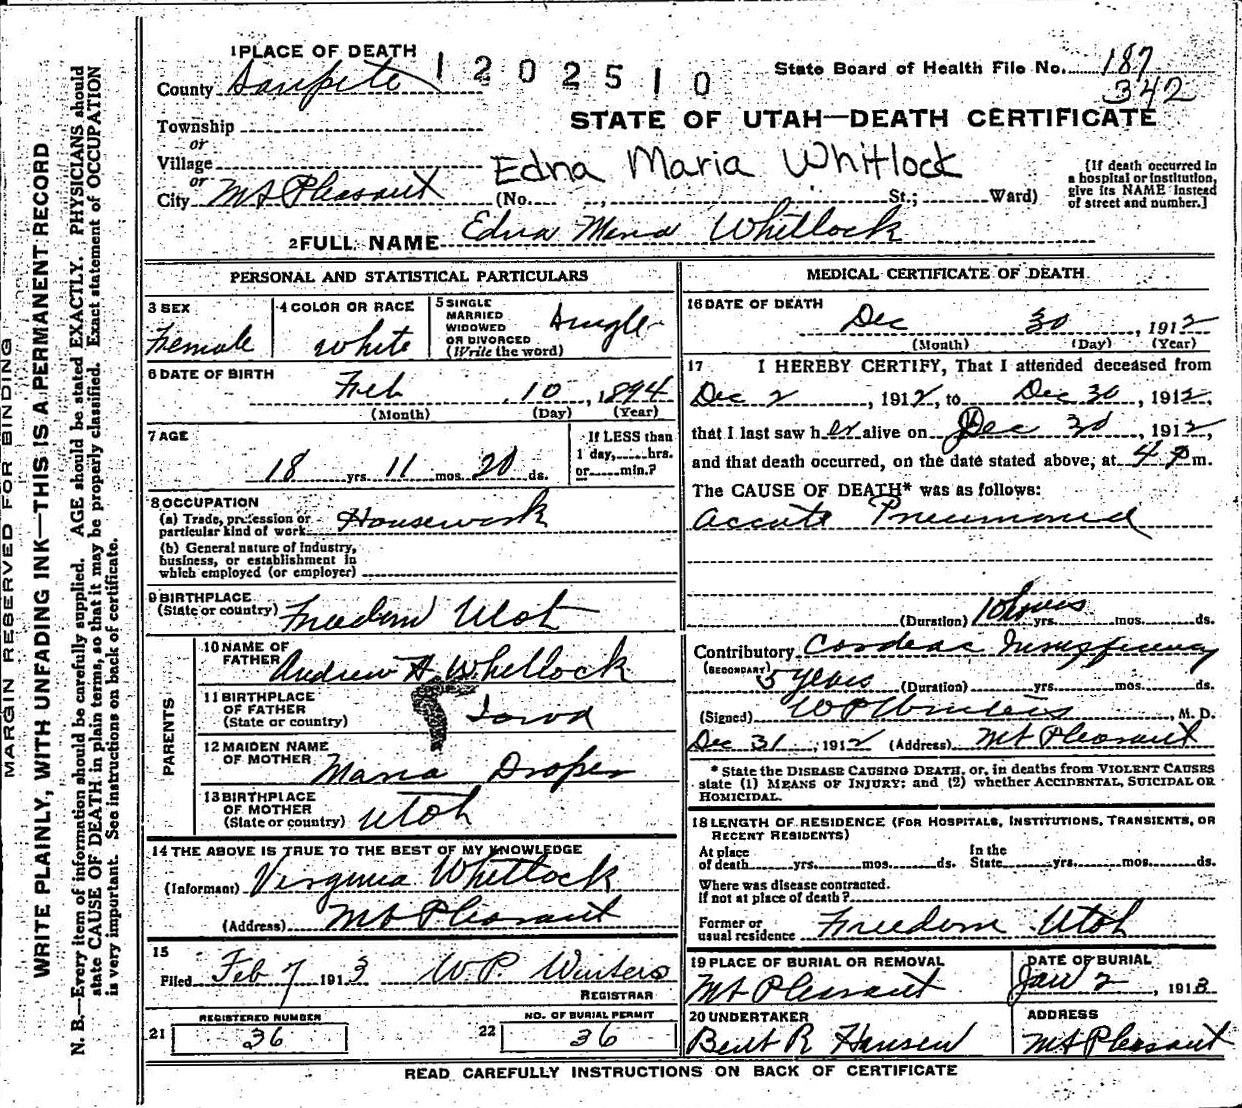 1 PLACE OF DEATH
1202510
State Board of Health File No. 187
342
County Sanpete
STATE OF UTAH—DEATH CERTIFICATE
Township
or
Village
or
Edna Maria Whitlock
City Mt Pleasant (No. , St.; Ward)
[If death occurred in
a hospital or institution,
give its NAME instead
of street and number.]
2 FULL NAME Edna Maria Whitlock
PERSONAL AND STATISTICAL PARTICULARS
3 SEX
Female
4 COLOR OR RACE
White
5 SINGLE
MARRIED
WIDOWED
OR DIVORCED
(Write the word)
Single
6 DATE OF BIRTH
Feb 10, 1894
(Month) (Day) (Year)
7 AGE
18 yrs. 11 mos. 20 ds.
If LESS than
1 day, hrs.
or min.?
8 OCCUPATION
(a) Trade, profession or
particular kind of work Housework
(b) General nature of industry,
business, or establishment in
which employed (or employer)
9 BIRTHPLACE
(State or country) Freedom Utah
PARENTS
10 NAME OF
FATHER Andrew H Whitlock
11 BIRTHPLACE
OF FATHER
(State or country) Iowa
12 MAIDEN NAME
OF MOTHER Maria Draper
13 BIRTHPLACE
OF MOTHER
(State or country) Utah
14 THE ABOVE IS TRUE TO THE BEST OF MY KNOWLEDGE
(Informant) Virginia Whitlock
(Address) Mt Pleasant
15
Filed Feb 7 1913 W.P. Winters
REGISTRAR
21 REGISTERED NUMBER
36
22 NO. OF BURIAL PERMIT
36
MEDICAL CERTIFICATE OF DEATH
16 DATE OF DEATH
Dec 30, 1912
(Month) (Day) (Year)
17 I HEREBY CERTIFY, That I attended deceased from
Dec 2, 1912, to Dec 30, 1912,
that I last saw her alive on Dec 30, 1912,
and that death occurred, on the date stated above, at 4 P m.
The CAUSE OF DEATH* was as follows:
Accute Pneumonia
(Duration) 10 hours yrs. mos. ds.
Contributory Cardeac Insufficiency
(SECONDARY) 5 years (Duration) yrs. mos. ds.
(Signed) W P Winters, M. D.
Dec 31, 1912 (Address) Mt Pleasant
* State the DISEASE CAUSING DEATH, or, in deaths from VIOLENT CAUSES
state (1) MEANS OF INJURY; and (2) whether ACCIDENTAL, SUICIDAL OR
HOMICIDAL.
18 LENGTH OF RESIDENCE (FOR HOSPITALS, INSTITUTIONS, TRANSIENTS, OR
RECENT RESIDENTS)
At place
of death yrs. mos. ds.
In the
State yrs. mos. ds.
Where was disease contracted.
If not at place of death?
Former or
usual residence Freedom Utah
19 PLACE OF BURIAL OR REMOVAL
Mt Pleasant
DATE OF BURIAL
Jan 2, 1913
20 UNDERTAKER
Bent R Hansen
ADDRESS
Mt Pleasant
READ CAREFULLY INSTRUCTIONS ON BACK OF CERTIFICATE
MARGIN RESERVED FOR BINDING
WRITE PLAINLY, WITH UNFADING INK—THIS IS A PERMANENT RECORD
N. B.—Every item of information should be carefully supplied. AGE should be stated EXACTLY. PHYSICIANS should
state CAUSE OF DEATH in plain terms, so that it may be properly classified. Exact statement of OCCUPATION
is very important. See instructions on back of certificate.